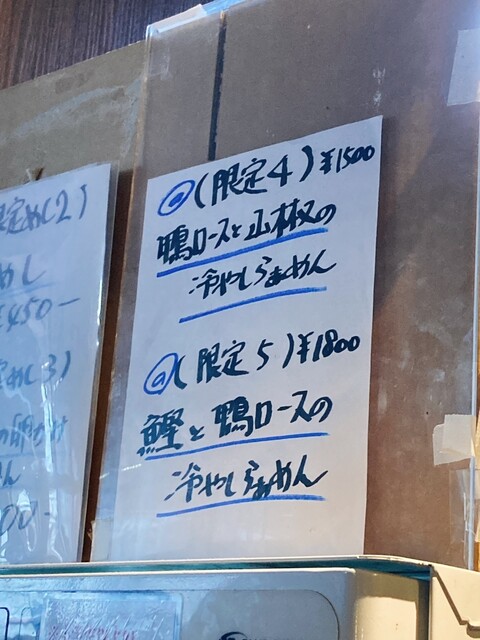 定めし2)
めし
¥450-
定めし3)
の卵かけ
00-
@(限定4)¥1500
鴨ロースと山椒の
冷やしらぁめん
@(限定5)¥1800
鰹と鴨ロースの
冷やしらぁめん